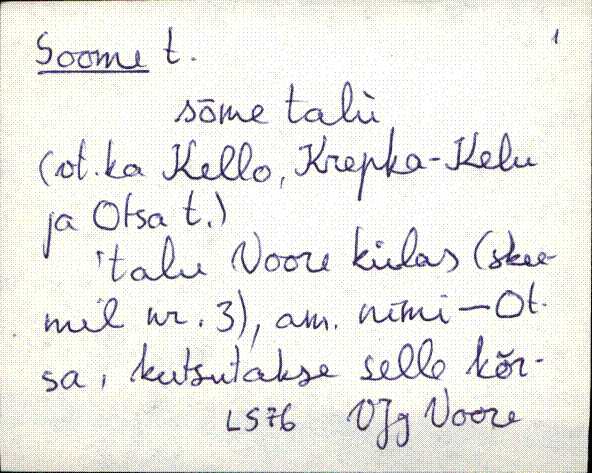 Soome t. 1
sōme talù
(vt. ka Kello, Krepka-Kelu
ja Otsa t.)
'talu Voore külas (skee-
mil nr. 3), am. nimi - Ot-
sa, kutsutakse selle kõr-
LS76 VJg Voore